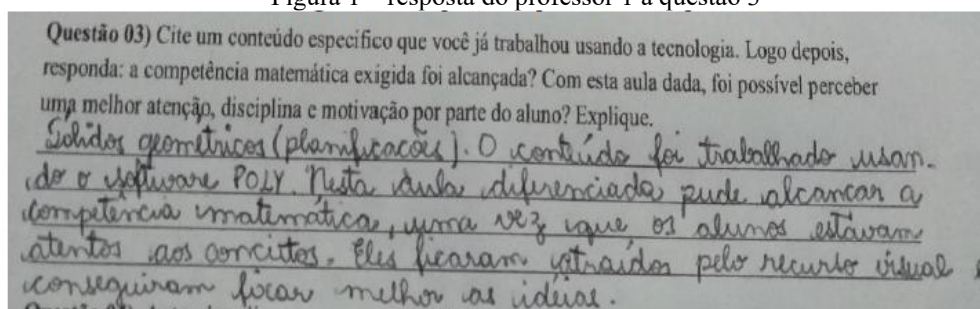 Figura 1 – resposta do professor 1 à questão 3
Questão 03) Cite um conteúdo especifico que você já trabalhou usando a tecnologia. Logo depois,
responda: a competência matemática exigida foi alcançada? Com esta aula dada, foi possível perceber
uma melhor atenção, disciplina e motivação por parte do aluno? Explique.
Sólidos geométricos (planificacões). O conteúdo foi trabalhado usan-
do o software POLY. Nesta aula diferenciada pude alcancar a
competência matemática, uma vez que os alunos estavam
atentos aos conceitos. Eles ficaram atraídos pelo recurso visual e
conseguiram focar melhor as idéias.